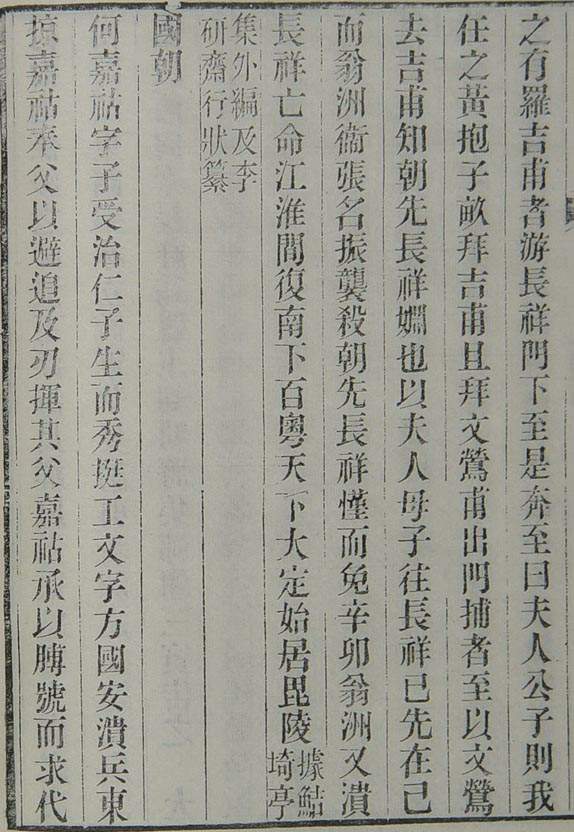 之有羅吉甫者游長祥門下至是奔至曰夫人公子則我
任之黃抱子畝拜吉甫且拜文鶯甫出門捕者至以文鶯
去吉甫知朝先長祥婣也以夫人母子往長祥已先在已
而翁洲衞張名振襲殺朝先長祥懂而免辛卯翁洲又潰
長祥亡命江淮間復南下百粵天下大定始居毘陵據鮚
埼亭
集外編及李
研齋行狀纂
國朝
何嘉祜字子受治仁子生而秀挺工文字方國安潰兵東
掠嘉祜奉父以避追及刃揮其父嘉祜承以膊號而求代